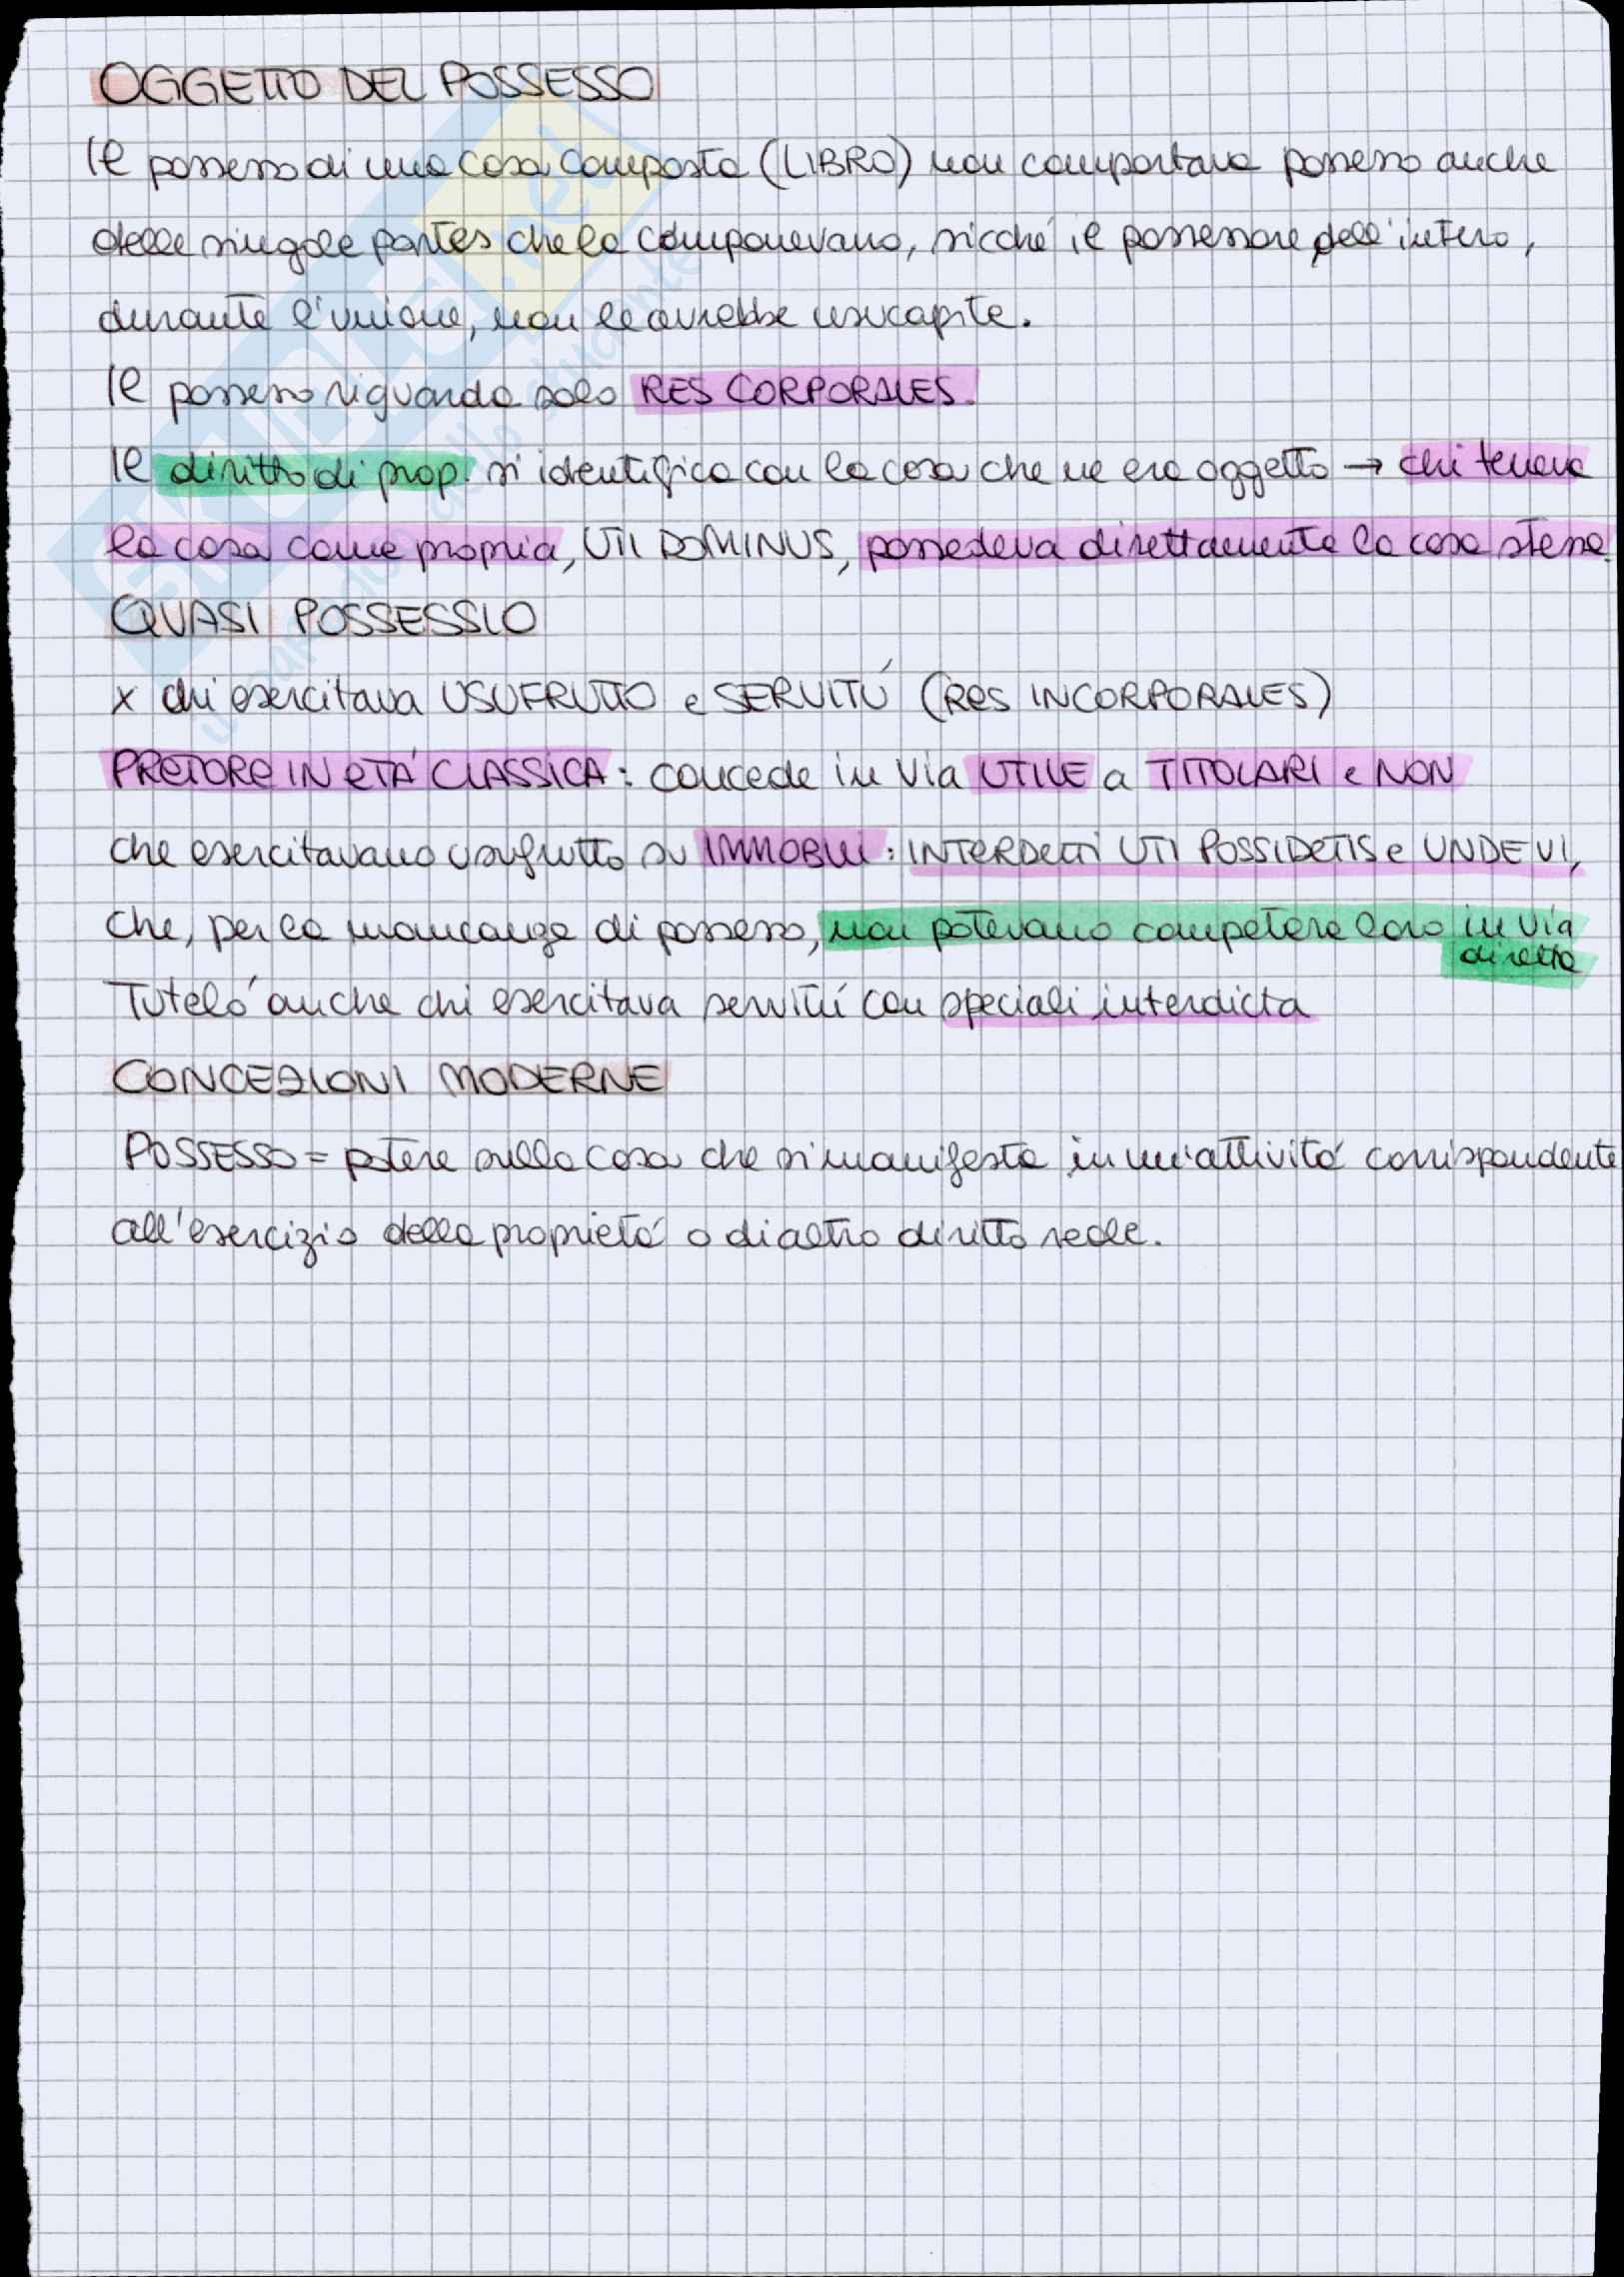 OGGETTO DEL POSSESSO
Il possesso di una cosa composta (LIBRO) non comportava possesso anche
delle singole partes che la componevano, sicché il possessore dell'intero,
durante l'unione, non le avrebbe usucapite.
Il possesso riguarda solo RES CORPORALES.
Il diritto di prop. si identifica con la cosa che ne era oggetto → chi teneva
la cosa come propria, UTI DOMINUS, possedeva direttamente la cosa stessa.
QUASI POSSESSIO
x chi esercitava USUFRUTTO e SERVITÚ (RES INCORPORALES)
PRETORE IN ETÁ CLASSICA: concede in via UTILE a TITOLARI e NON
che esercitavano usufrutto su IMMOBILI: INTERDETTI UTI POSSIDETIS e UNDE VI,
che, per la mancanza di possesso, non potevano competere loro in via
diretta
Tuteló anche chi esercitava servitú con speciali interdicta
CONCEZIONI MODERNE
POSSESSO = potere sulla cosa che si manifesta in un'attivitá corrispondente
all'esercizio della proprietá o di altro diritto reale.